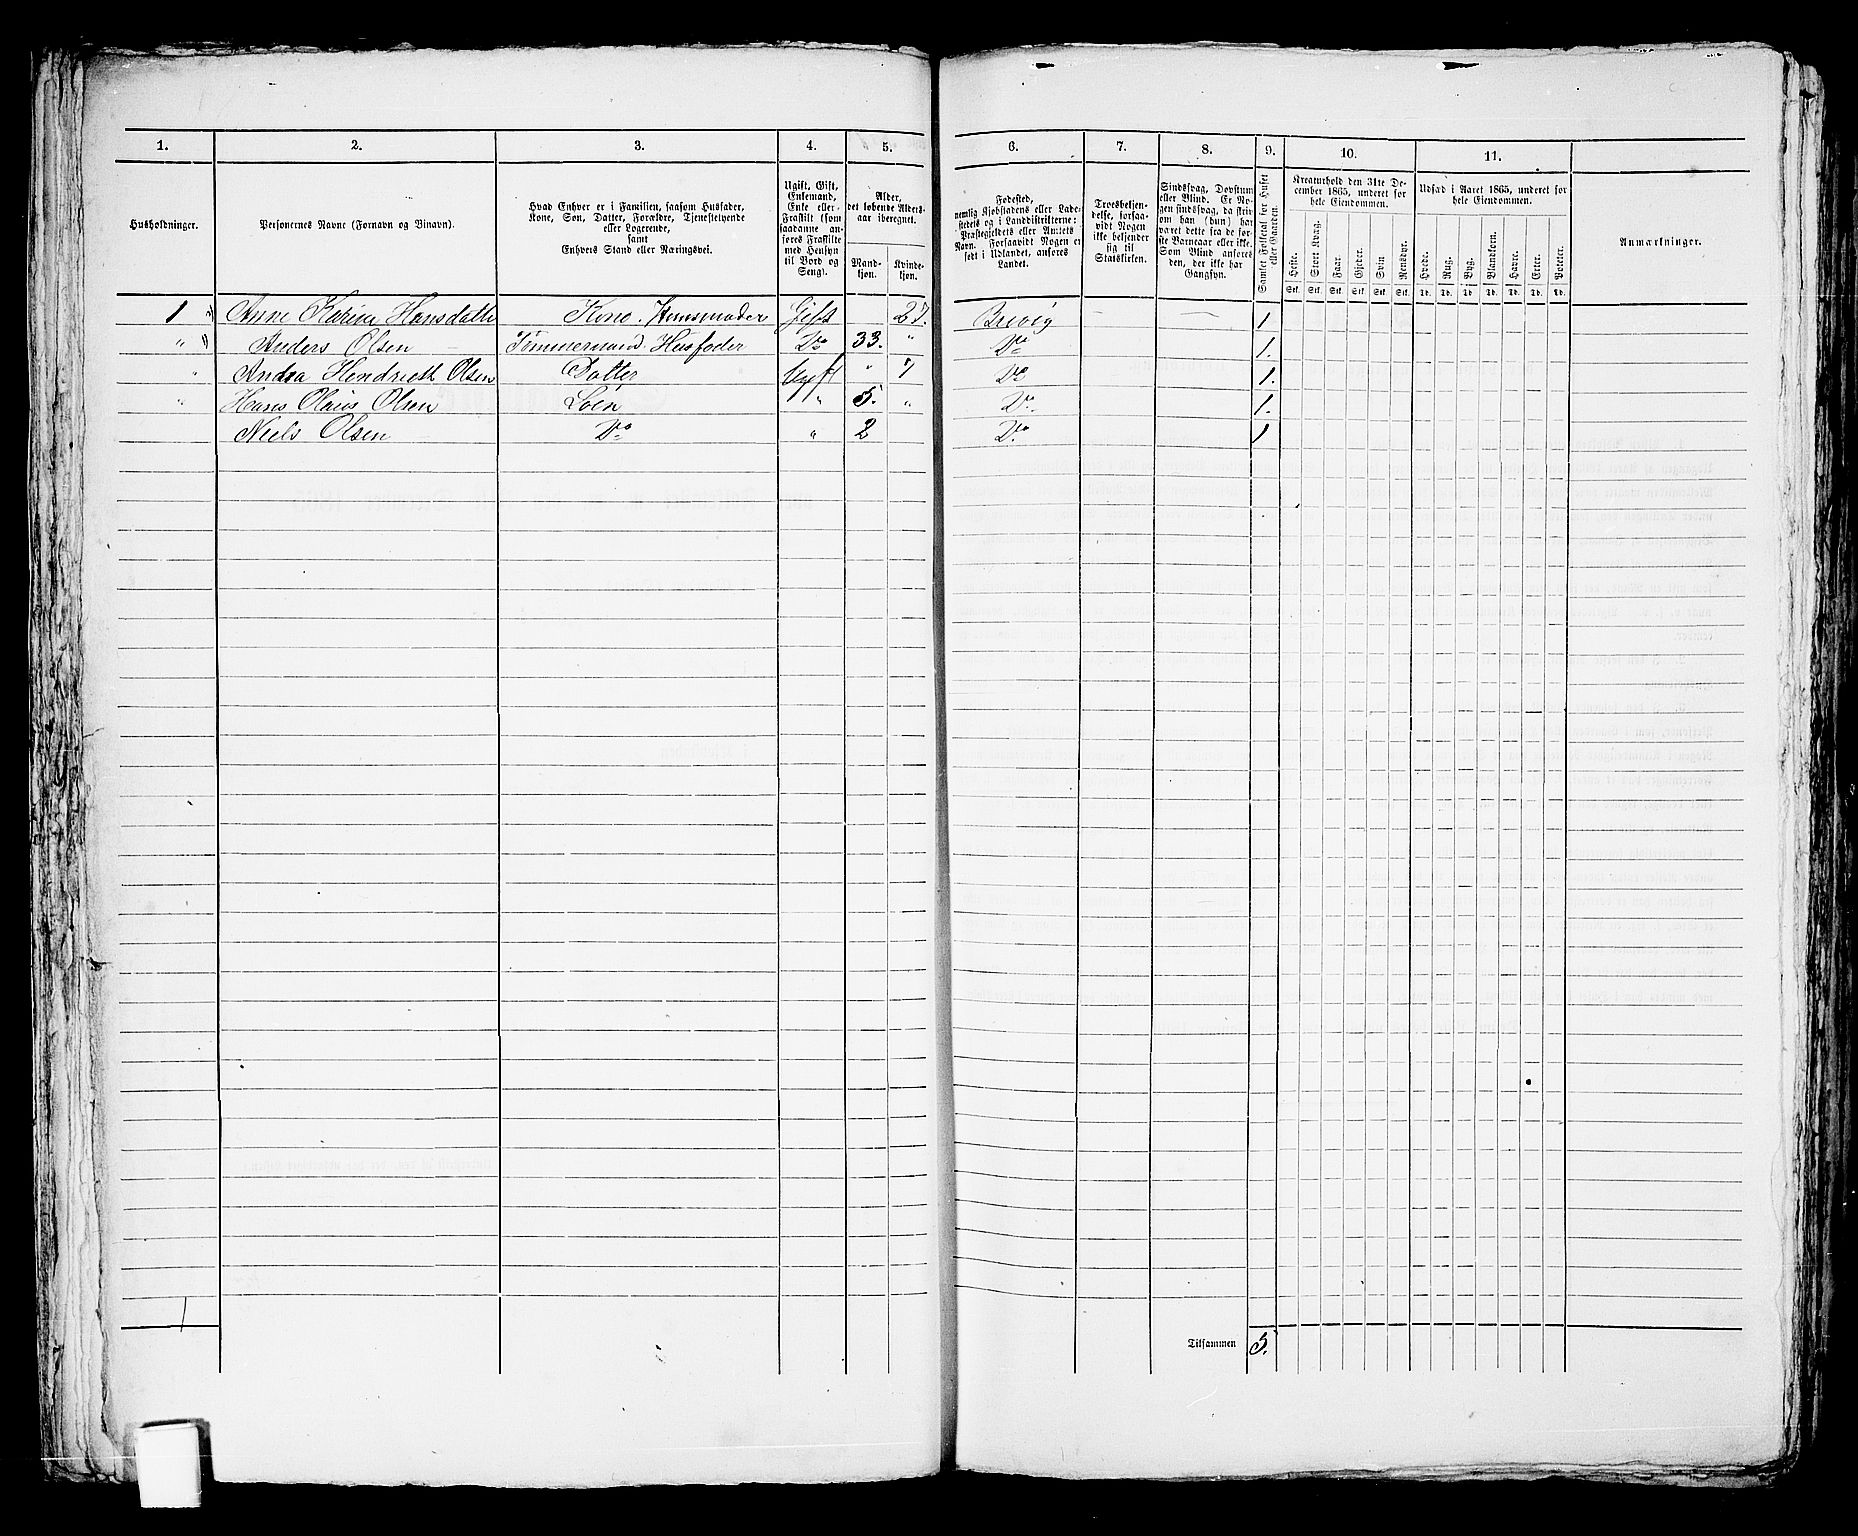 1. 2. 3. 4. 5. 6. 7. 8. 9. 10. 11.
Husholdninger.
Personernes Navne (Fornavn og Binavn).
Hvad Enhver er i Familien, saasom Husfader,
Kone, Søn, Datter, Forældre, Tjenestetyende
eller Logerende,
samt
Enhvers Stand eller Næringsvei.
Ugift, Gift,
Enkemand,
Enke eller
Fraskilt (som
saadanne an-
føres Fraskilte
med Hensyn
til Bord og
Seng).
Alder,
det løbende Alders-
aar iberegnet.
Mand-
kjøn.
Kvinde-
kjøn.
Fødested,
nemlig Kjøbstadens eller Lade-
stedets og i Landdistrikterne:
Præstegjeldets eller Amtets
Navn. Forsaavidt Nogen er
født i Udlandet, anføres
Landet.
Troesbekjen-
delse, forsaa-
vidt Nogen
ikke bekjender
sig til
Statskirken.
Sindssvag, Døvstum
eller Blind. Er No-
gen sindssvag, da skri-
ves om han (hun) har
været dette fra de før-
ste Barneaar eller ikke.
Som Blind anføres
den, der ikke har
Gangsyn.
Samlet Folketal for Huset
eller Gaarden.
Kreaturhold den 31te De-
cember 1865, underet for
hele Eiendommen.
Heste. Stort Kvæg. Faar. Gjeder. Svin Rensdyr.
Stk. Stk. Stk. Stk. Stk. Stk.
Udsæd i Aaret 1865, underet for
hele Eiendommen.
Hvede. Rug. Byg. Blandkorn. Havre. Erter. Poteter.
Td. Td. Td. Td. Td. Td. Td.
Anmærkninger.
1 " Anne Karine Hansdatter Kone. Huusmoder Gift 27. Brevig 1
" " Anders Olsen Tømmermand. Husfader Do 33. " Do 1.
" Andrea Hendrieth Olsen Datter Ugift " 7 Do 1.
" Hans Olaus Olsen Søen " 5. " Do. 1.
Niels Olsen Do " 2 Do. 1
1
Tilsammen 5.